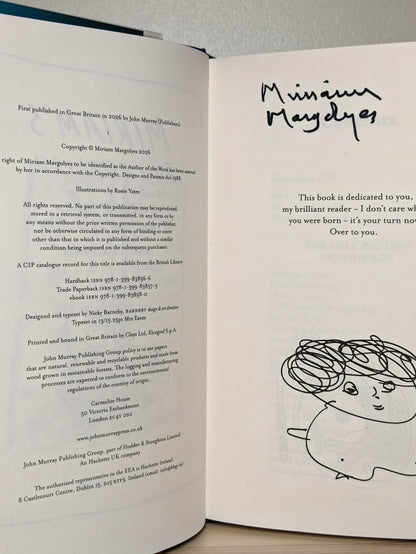 First published in Great Britain in 2026 by John Murray (Publishers)
1
Copyright © Miriam Margolyes 2026
right of Miriam Margolyes to be identified as the Author of the Work has been asserted
by her in accordance with the Copyright, Designs and Patents Act 1988.
Illustrations by Rosie Yates
All rights reserved. No part of this publication may be reproduced,
stored in a retrieval system, or transmitted, in any form or by
any means without the prior written permission of the publisher,
nor be otherwise circulated in any form of binding or cover
other than that in which it is published and without a similar
condition being imposed on the subsequent purchaser.
A CIP catalogue record for this title is available from the British Library
Hardback ISBN 978-1-399-83856-6
Trade Paperback ISBN 978-1-399-83857-3
ebook ISBN 978-1-399-83858-0
Designed and typeset by Nicky Barneby, BARNEBY design & art direction
Typeset in 13/15.25pt Mrs Eaves
Printed and bound in Great Britain by Clays Ltd, Elcograf S.p.A.
John Murray Publishing Group policy is to use papers
that are natural, renewable and recyclable products and made from
wood grown in sustainable forests. The logging and manufacturing
processes are expected to conform to the environmental
regulations of the country of origin.
Carmelite House
50 Victoria Embankment
London EC4Y 0DZ
www.johnmurraypress.co.uk
John Murray Publishing Group, part of Hodder & Stoughton Limited
An Hachette UK company
The authorised representative in the EEA is Hachette Ireland,
8 Castlecourt Centre, Dublin 15, D15 XTP3, Ireland (email: info@hbgi.ie)
Miriam
Margolyes
This book is dedicated to you,
my brilliant reader – I don't care
you were born – it's your turn
Over to you.